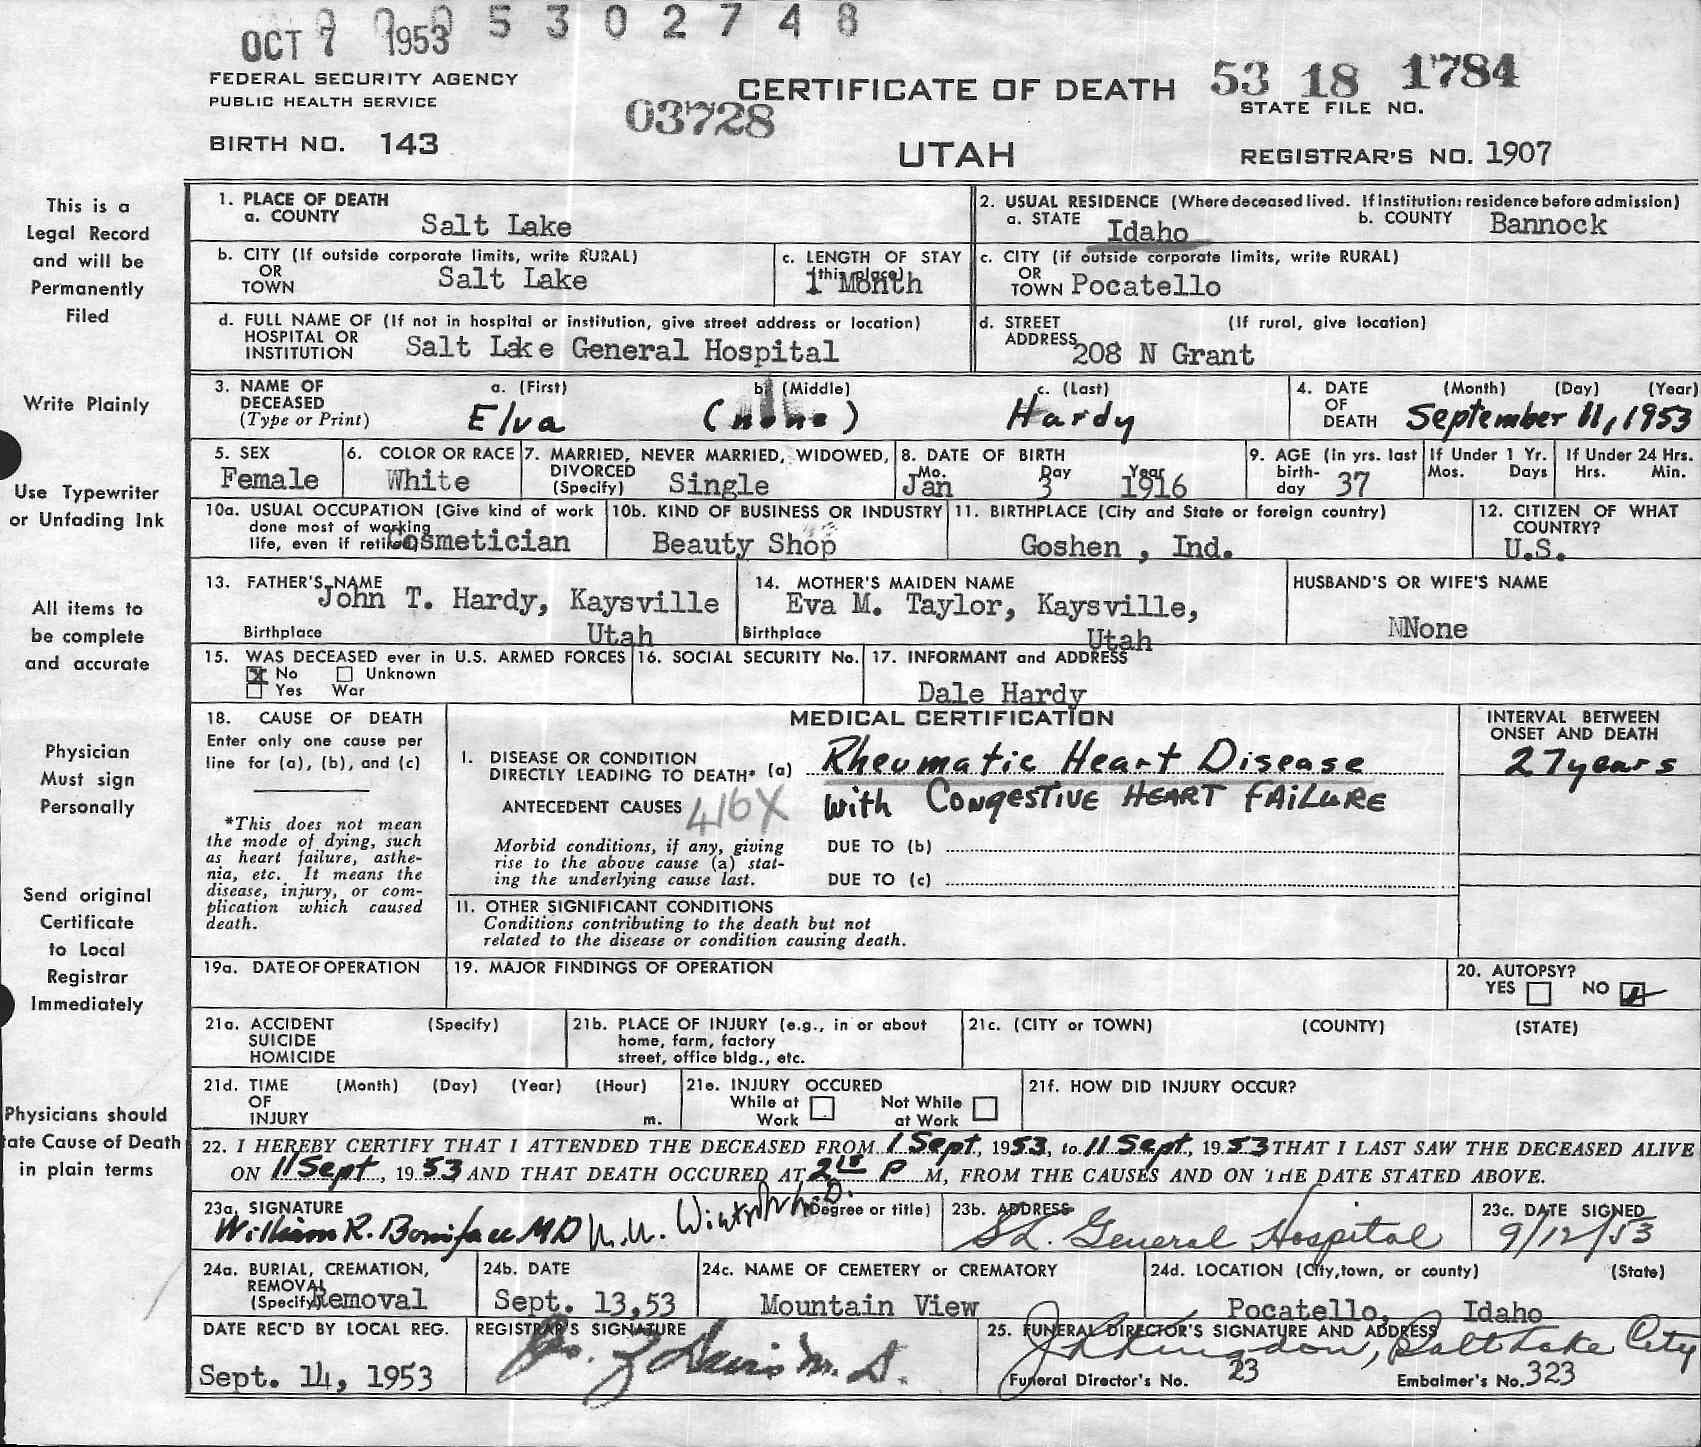 OCT 7 1953 5 3 0 2 7 4 8
FEDERAL SECURITY AGENCY
PUBLIC HEALTH SERVICE
BIRTH NO. 143
03728
CERTIFICATE OF DEATH
UTAH
53 18 1784
STATE FILE NO.
REGISTRAR'S NO. 1907
This is a
Legal Record
and will be
Permanently
Filed
Write Plainly
Use Typewriter
or Unfading Ink
All items to
be complete
and accurate
Physician
Must sign
Personally
Send original
Certificate
to Local
Registrar
Immediately
Physicians should
ate Cause of Death
in plain terms
1. PLACE OF DEATH
a. COUNTY Salt Lake
2. USUAL RESIDENCE (Where deceased lived. If institution: residence before admission)
a. STATE Idaho b. COUNTY Bannock
b. CITY (If outside corporate limits, write RURAL)
OR
TOWN Salt Lake
c. LENGTH OF STAY
(this place)
1 Month
c. CITY (if outside corporate limits, write RURAL)
OR
TOWN Pocatello
d. FULL NAME OF (If not in hospital or institution, give street address or location)
HOSPITAL OR
INSTITUTION Salt Lake General Hospital
d. STREET (If rural, give location)
ADDRESS 208 N Grant
3. NAME OF a. (First) b. (Middle) c. (Last)
DECEASED
(Type or Print) Elva (none) Hardy
4. DATE (Month) (Day) (Year)
OF
DEATH September 11, 1953
5. SEX
Female
6. COLOR OR RACE
White
7. MARRIED, NEVER MARRIED, WIDOWED,
DIVORCED
(Specify) Single
8. DATE OF BIRTH
Mo. Day Year
Jan 3 1916
9. AGE (In yrs. last
birth-
day 37
If Under 1 Yr.
Mos. Days
If Under 24 Hrs.
Hrs. Min.
10a. USUAL OCCUPATION (Give kind of work
done most of working
life, even if retired) Cosmetician
10b. KIND OF BUSINESS OR INDUSTRY
Beauty Shop
11. BIRTHPLACE (City and State or foreign country)
Goshen , Ind.
12. CITIZEN OF WHAT
COUNTRY?
U.S.
13. FATHER'S NAME
John T. Hardy, Kaysville
Birthplace Utah
14. MOTHER'S MAIDEN NAME
Eva M. Taylor, Kaysville,
Birthplace Utah
HUSBAND'S OR WIFE'S NAME
NNone
15. WAS DECEASED ever in U.S. ARMED FORCES
No Unknown
Yes War
16. SOCIAL SECURITY No.
17. INFORMANT and ADDRESS
Dale Hardy
18. CAUSE OF DEATH
Enter only one cause per
line for (a), (b), and (c)
*This does not mean
the mode of dying, such
as heart failure, asthe-
nia, etc. It means the
disease, injury, or com-
plication which caused
death.
MEDICAL CERTIFICATION
INTERVAL BETWEEN
ONSET AND DEATH
I. DISEASE OR CONDITION
DIRECTLY LEADING TO DEATH* (a) Rheumatic Heart Disease 27 years
ANTECEDENT CAUSES 416X with CONGESTIVE HEART FAILURE
Morbid conditions, if any, giving
rise to the above cause (a) stat-
ing the underlying cause last.
DUE TO (b)
DUE TO (c)
11. OTHER SIGNIFICANT CONDITIONS
Conditions contributing to the death but not
related to the disease or condition causing death.
19a. DATE OF OPERATION
19. MAJOR FINDINGS OF OPERATION
20. AUTOPSY?
YES NO
21a. ACCIDENT (Specify)
SUICIDE
HOMICIDE
21b. PLACE OF INJURY (e.g., in or about
home, farm, factory
street, office bldg., etc.
21c. (CITY or TOWN) (COUNTY) (STATE)
21d. TIME (Month) (Day) (Year) (Hour)
OF
INJURY m.
21e. INJURY OCCURED
While at Not While
Work at Work
21f. HOW DID INJURY OCCUR?
22. I HEREBY CERTIFY THAT I ATTENDED THE DECEASED FROM 1 Sept, 1953, to 11 Sept, 1953 THAT I LAST SAW THE DECEASED ALIVE
ON 11 Sept, 1953 AND THAT DEATH OCCURED AT 2 18 P M, FROM THE CAUSES AND ON THE DATE STATED ABOVE.
23a. SIGNATURE (Degree or title)
William R. Boniface MD
23b. ADDRESS
S.L. General Hospital
23c. DATE SIGNED
9/12/53
24a. BURIAL, CREMATION,
REMOVAL
(Specify) Removal
24b. DATE
Sept. 13,53
24c. NAME OF CEMETERY or CREMATORY
Mountain View
24d. LOCATION (City, town, or county) (State)
Pocatello, Idaho
DATE REC'D BY LOCAL REG.
Sept. 14, 1953
REGISTRAR'S SIGNATURE
25. FUNERAL DIRECTOR'S SIGNATURE AND ADDRESS
Salt Lake City
Funeral Director's No. 23 Embalmer's No. 323